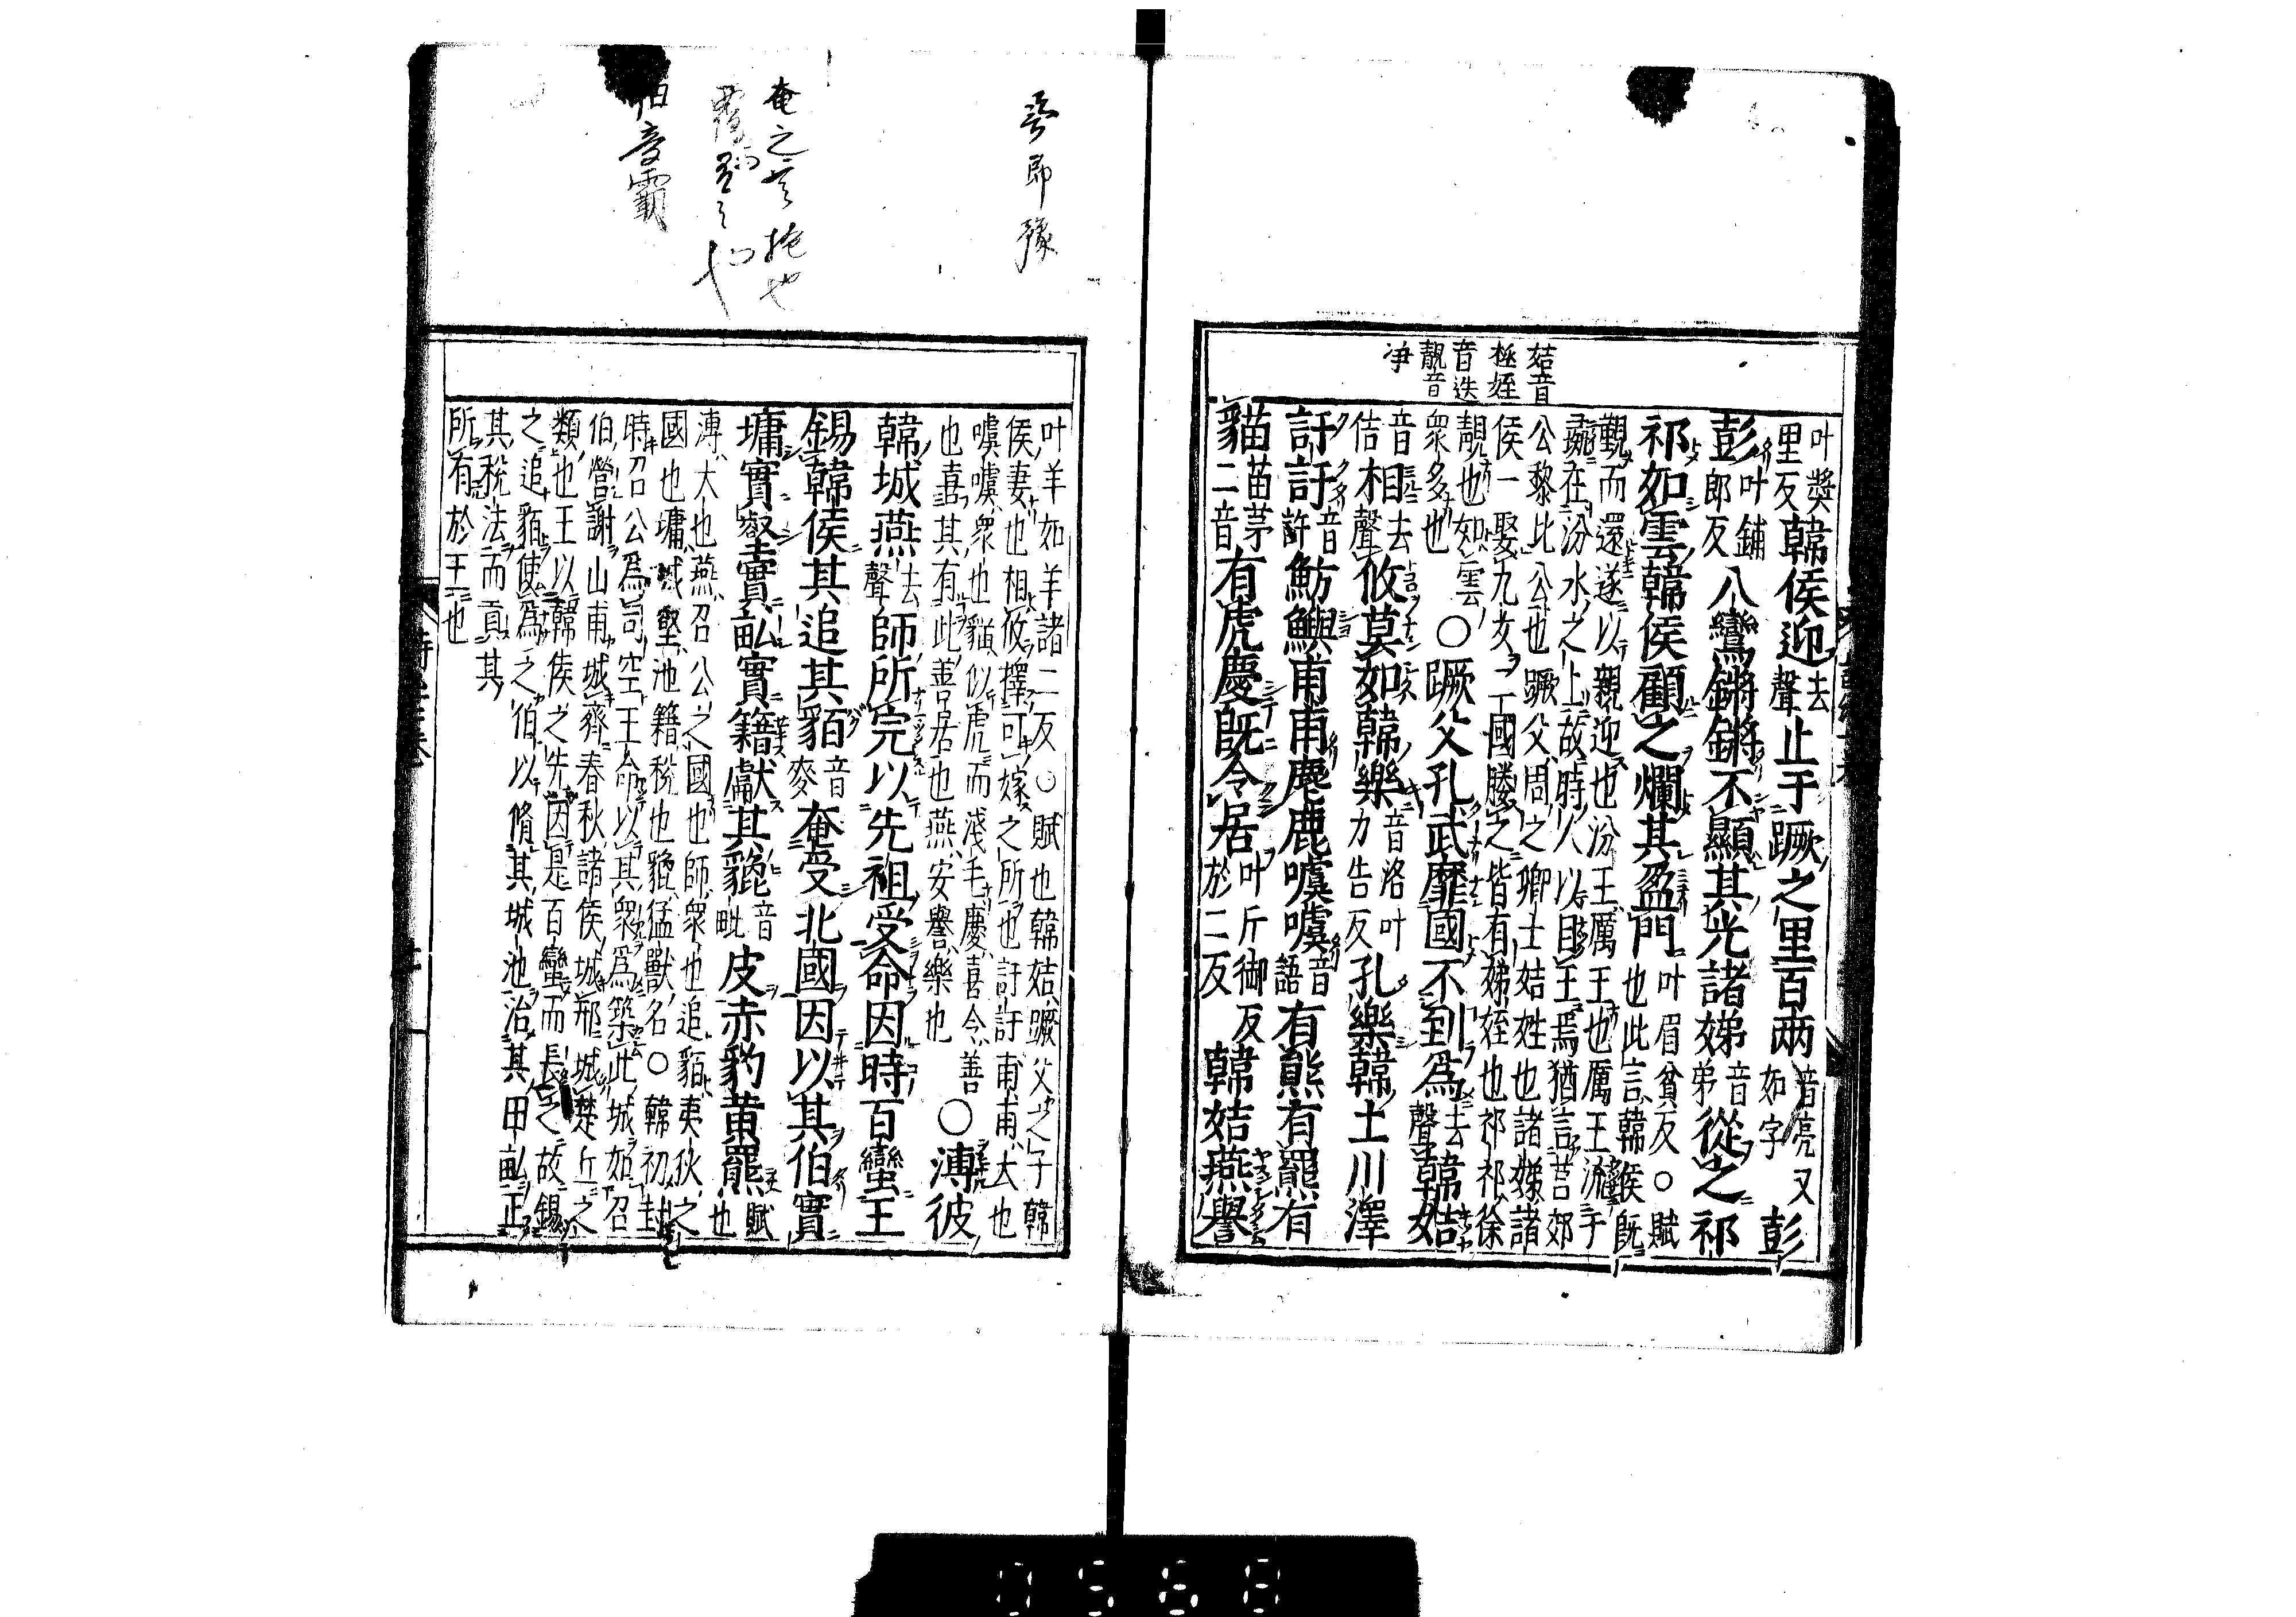 姞音
極姪
音迭
靚音
淨
叶奬
里反韓侯迎去聲止于蹶之里百兩音亮又如字彭
彭叶鋪郎反八鸞鏘鏘不顯其光諸娣音弟從之祁
祁如雲韓侯顧之爛其盈門叶眉貧反○賦也此言韓侯既
覲而還遂以親迎也汾王厲王也厲王流于
彘在汾水之上故時人以目王焉猶言莒郊
公黎比公也蹶父周之卿士姞姓也諸娣諸
侯一娶九女二國媵之皆有娣姪也祁祁徐
靚也如雲
衆多也○蹶父孔武靡國不到爲去聲韓姞
音佶相去聲攸莫如韓樂音洛叶力告反孔樂韓土川澤
訏訏音許魴鱮甫甫麀鹿噳噳音語有熊有羆有
貓苗茅二音有虎慶既令居叶斤御於二反反韓姞燕譽
叶羊如羊諸二反○賦也韓姞蹶父之子韓
侯妻也相攸擇可嫁之所也訏訏甫甫大也
噳噳衆也貓似虎而淺毛慶喜令善
也喜其有此善居也燕安譽樂也○溥彼
韓城燕去聲師所完以先祖受命因時百蠻王
錫韓侯其追其貊音麥奄受北國因以其伯實
墉實壑實畝實籍獻其貔音毗皮赤豹黄羆賦也
溥大也燕召公之國也師衆也追貊夷狄之
國也墉城壑池籍稅也貔猛獸名○韓初封
時召公爲司空王命以其衆爲築此城如召
伯營謝山甫城齊春秋諸侯城邢城楚丘之
類也王以韓侯之先因是百蠻而長之故錫
之追貊使爲之伯以脩其城池治其田畝正
其稅法而貢其
所有於王也
㝈即豫
奄之言掩也
伯音霸